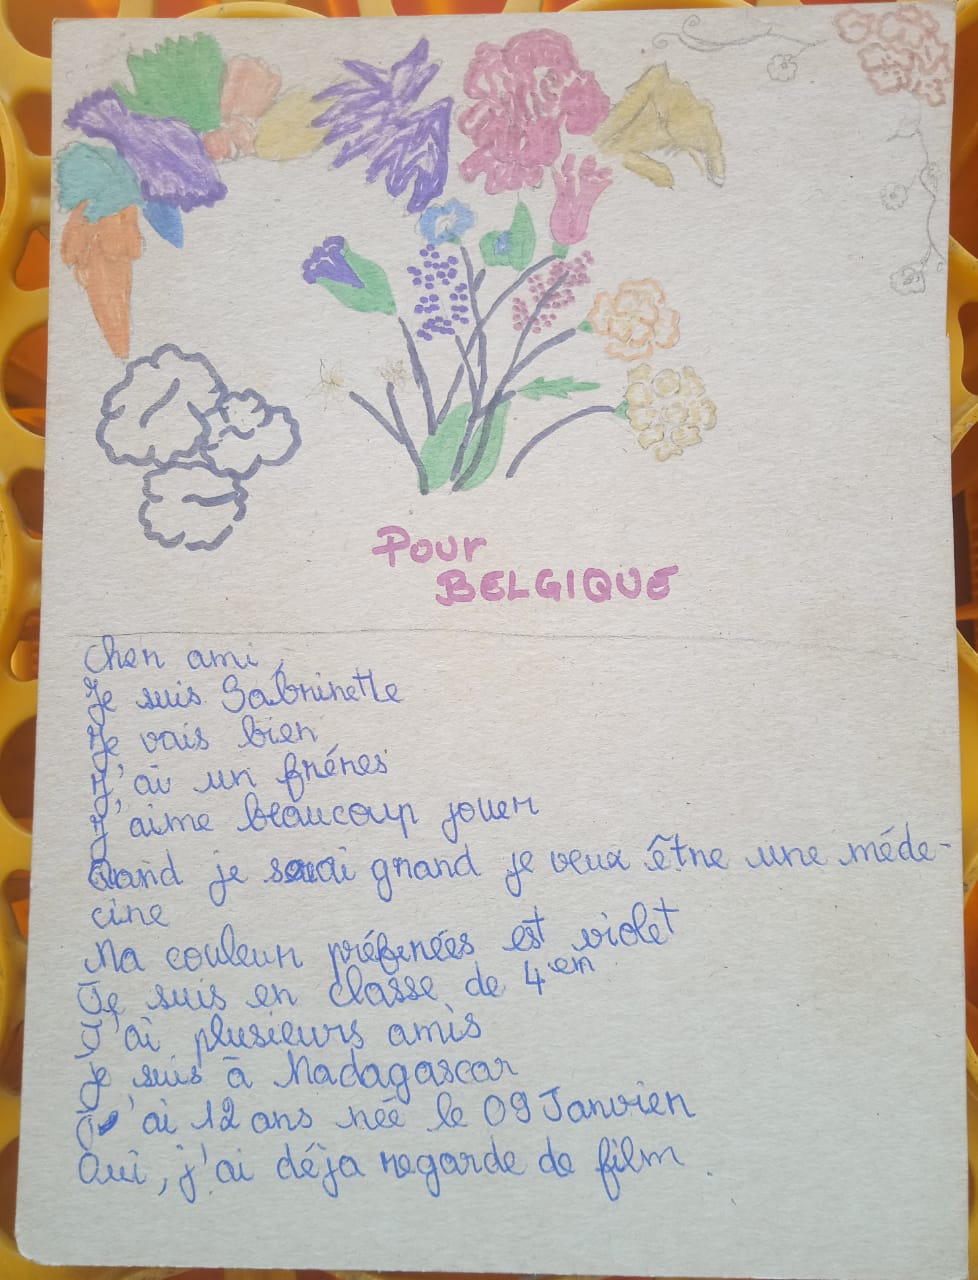 Pour
BELGIQUE
Cher ami,
Je suis Sabrinette
Je vais bien
J'ai un fréres
J'aime beaucoup jouer
Quand je sarai grand je veux être une méde-
cine
Ma couleur préferées est violet
Je suis en classe de 4em
J'ai plusieurs amis
je suis à Madagascar
J'ai 12 ans née le 09 Janvier
Oui, j'ai déja regarde de film.